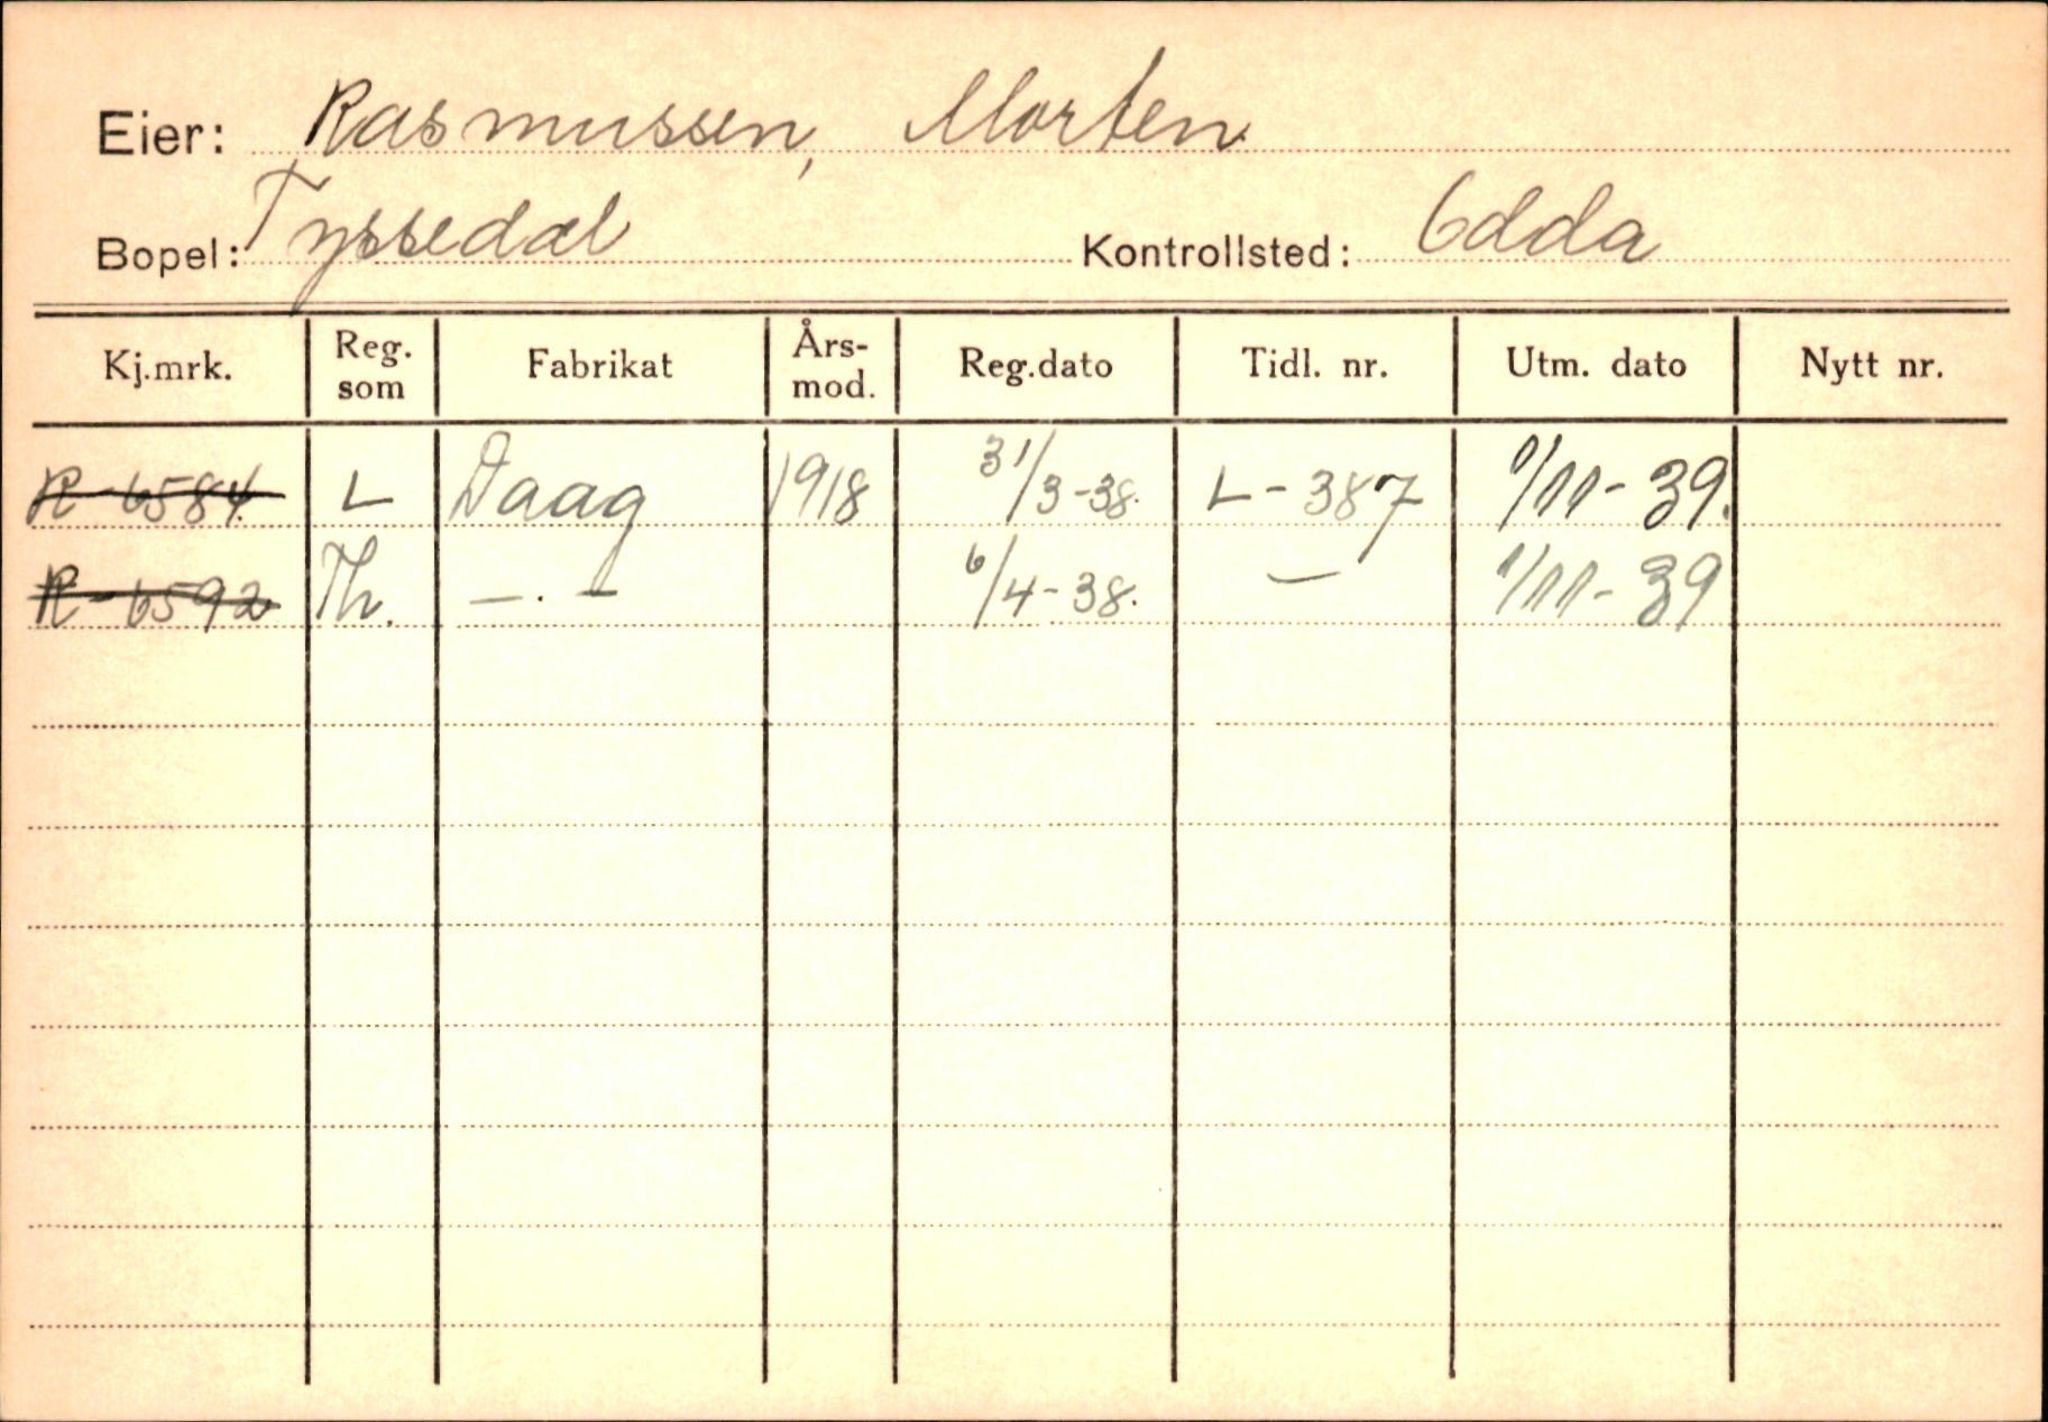 Eier: Rasmussen, Morten
Bopel: Tyssedal Kontrollsted: Odda
Kj.mrk. Reg. som Fabrikat Års-mod. Reg.dato Tidl. nr. Utm. dato Nytt nr.
R-6584 L Daag 1918 31/3-38. L-387 1/11-39.
R-6592 Th. -.- 6/4-38. - 1/11-39